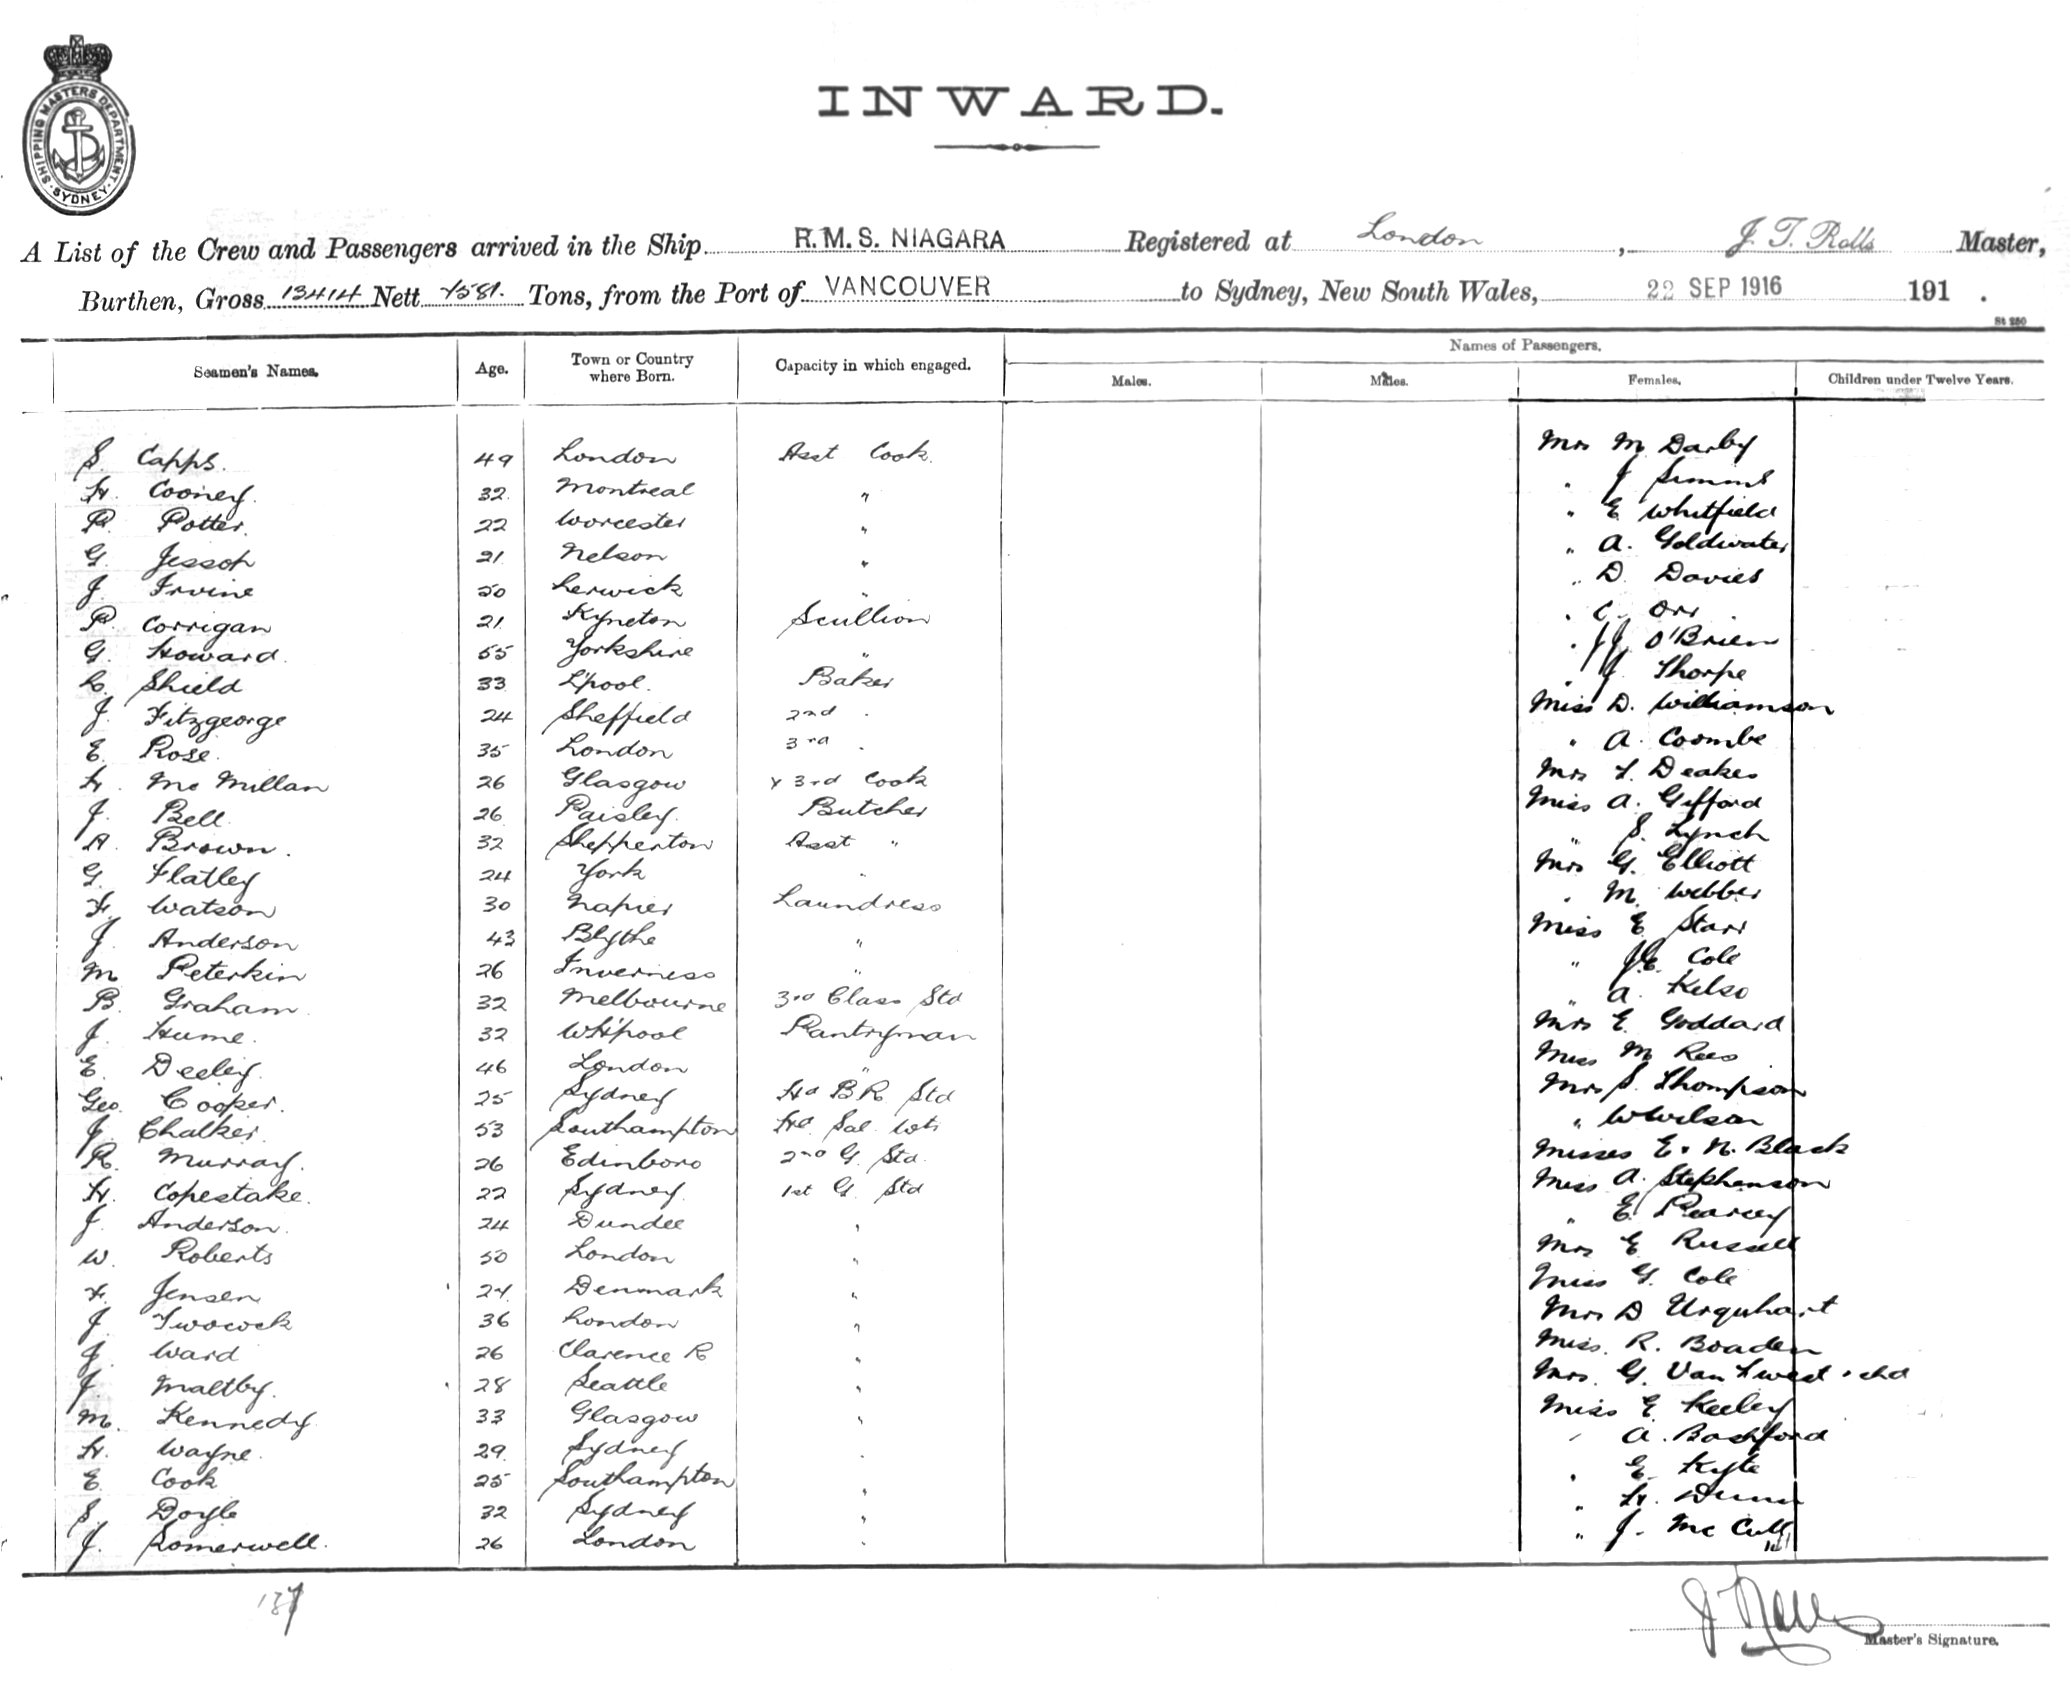 SHIPPING MASTERS DEPARTMENT. SYDNEY.
INWARD.
A List of the Crew and Passengers arrived in the Ship R.M.S. NIAGARA Registered at London, J. T. Rolls Master,
Burthen, Gross 13414 Nett 7581. Tons, from the Port of VANCOUVER to Sydney, New South Wales, 22 SEP 1916 191 .
St 250
Seamen's Names. Age. Town or Country where Born. Capacity in which engaged. Names of Passengers.
Males. Males. Females. Children under Twelve Years.
S. Capps. 49 London Asst Cook. Mrs M. Darby
H. Cooney. 32. Montreal " " J Simms
P. Potter. 22 Worcester " " E Whitfield
G. Jessop 21 Nelson " " A. Goldwater
J. Irvine 20 Lerwick " " D. Davies
P. Corrigan 21 Kyneton Scullion " C. Orr
G. Howard. 55 Yorkshire " " J.J. O'Brien
L. Shield 33 L'pool. Baker " J. Thorpe
J. Fitzgeorge 24 Sheffield 2nd " Miss D. Williamson
E. Rose. 35 London 3rd " " A. Coombe
H. McMillan 26 Glasgow & 3rd Cook Mrs L. Deakes
J. Bell 26 Paisley. Butcher Miss A. Gifford
A. Brown. 32 Shepperton Asst " " S. Lynch
G. Flatley 24 York " Mrs G. Elliott
F. Watson 30 Napier Laundress " M. Webber
J. Anderson 43 Blythe " Miss E. Starr
M Peterkin 26 Inverness " " J.E. Cole
B. Graham 32 Melbourne 3rd Class Std " A. Kelso
J. Hume. 32 W H'pool Pantryman Mrs E. Goddard
E. Deeley. 46 London " Miss M Rees
Geo. Cooper. 25 Sydney Hd B R Std Mrs S. Thompson
J. Chalker. 53 Southampton Hd Sal. Wtr " W Wilson
R. Murray. 26 Edinboro 2nd G. Std. Misses E. N. Black
H. Copestake. 22 Sydney. 1st G. Std Miss A. Stephenson
J. Anderson. 24 Dundee " " E. Pearcey
W. Roberts 50 London " Mrs E Russell
F. Jensen 24 Denmark " Miss G. Cole
J. Twocock 36 London " Mrs D Urquhart
J. Ward 26 Clarence R " Miss. R. Boaden
J. Maltby. 28 Seattle " Mrs. G. Van & chd
M. Kennedy 33 Glasgow " Miss E. Keeley
H. Wayne. 29. Sydney " " A. Bashford
E. Cook 25 Southampton " " E. Kyte
S. Doyle 32 Sydney " " H. Dunn
J. Somerwell. 26 London " " J. Mc
J Rolls
Master's Signature.